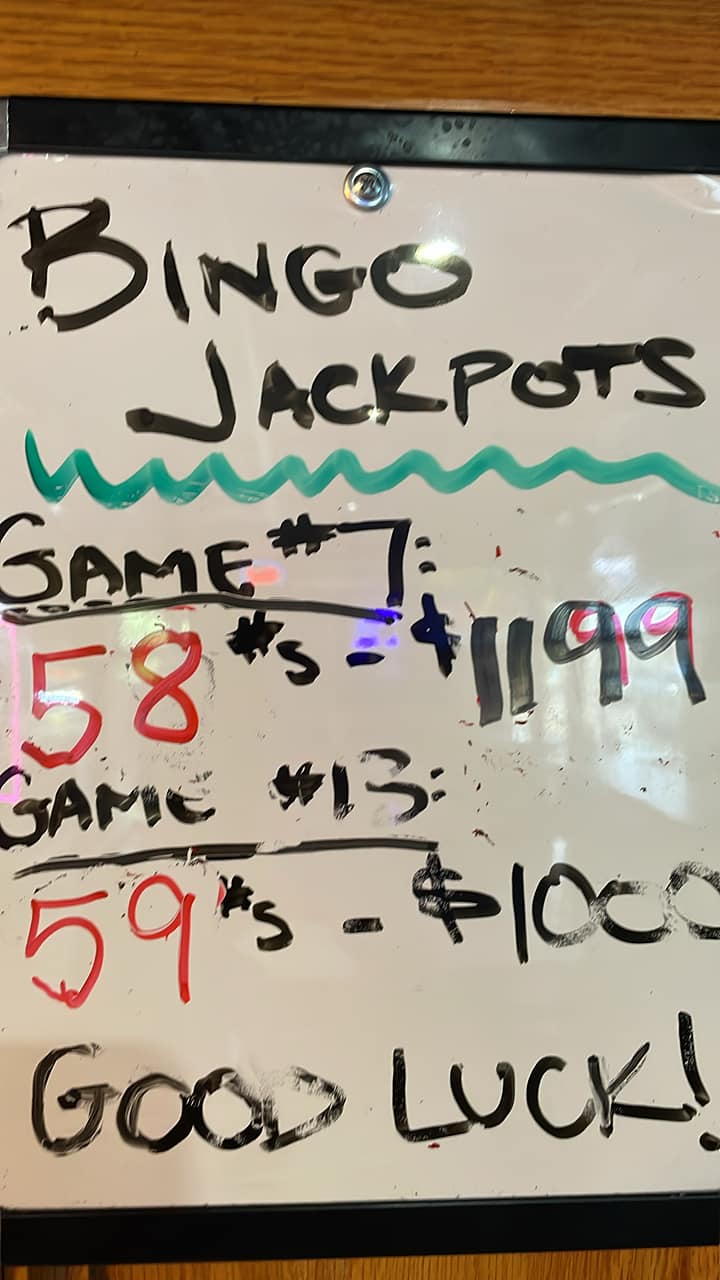 BINGO
JACKPOTS
GAME #7:
58 #s - $1199
GAME #13:
59 #s - $1000
GOOD LUCK!